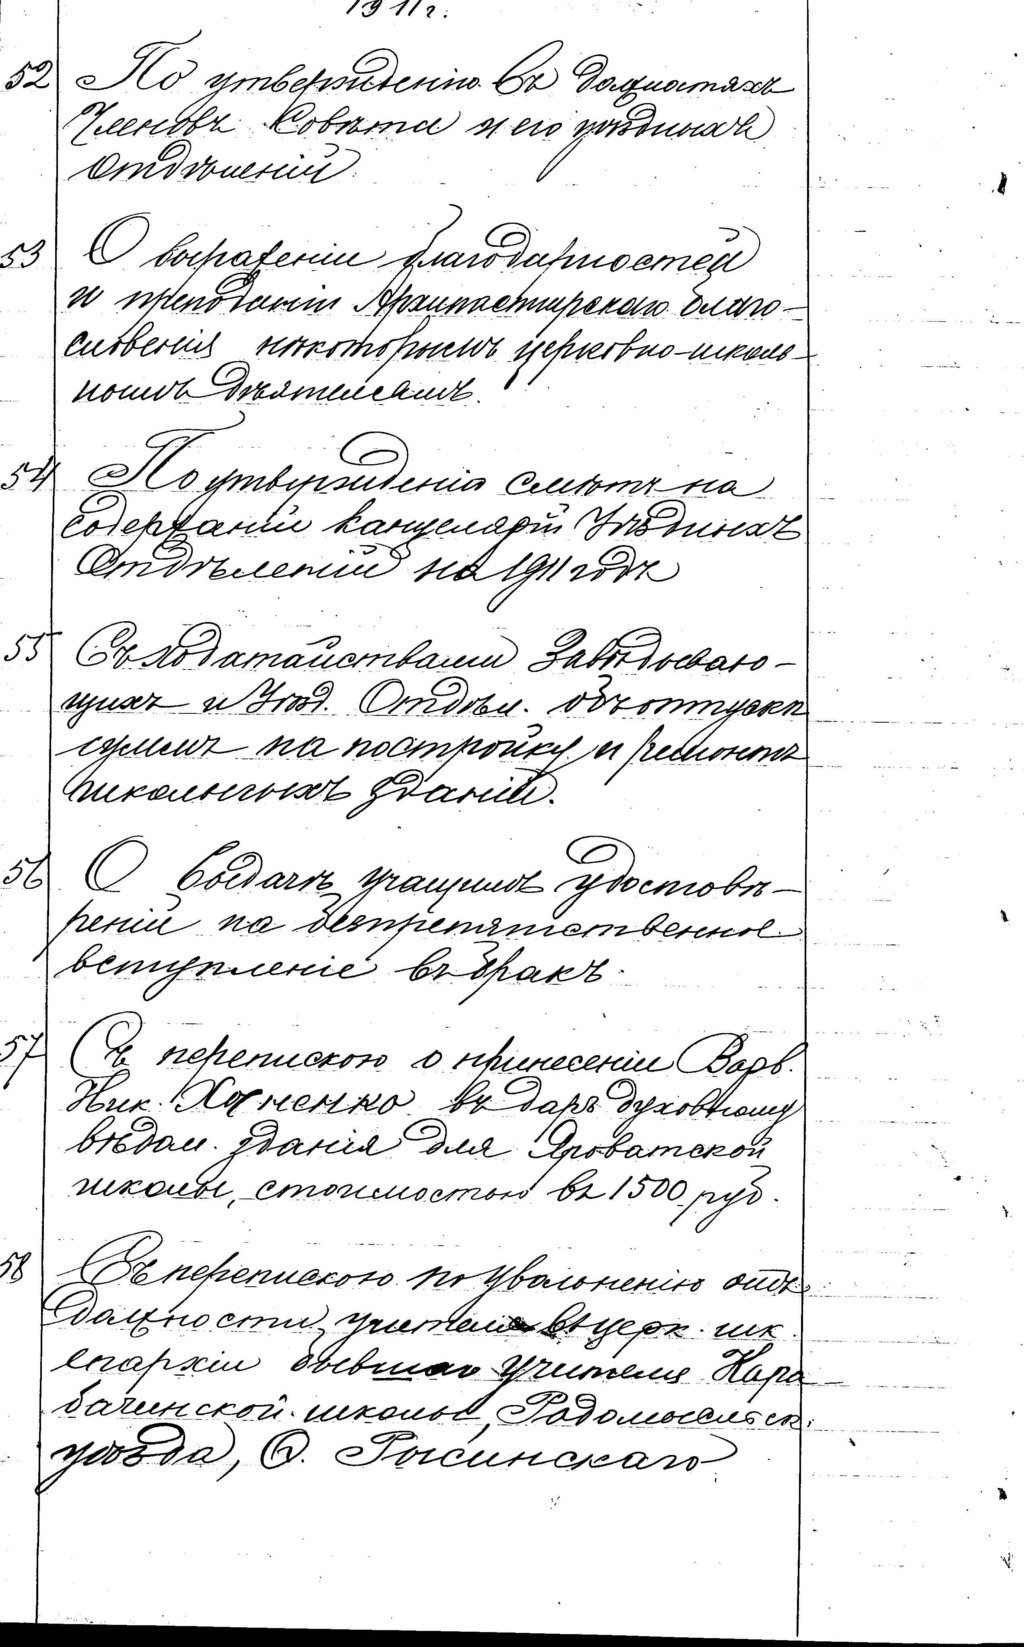 1911 г.
52 По утвержденію въ должностяхъ
Членовъ Совѣта и его уѣздныхъ
Отдѣленій.
53 О выраженіи благодарностей
и преподаніи Архипастырскаго благо-
словенія нѣкоторымъ церковно-школь-
нымъ дѣятелямъ.
54 По утвержденія смѣтъ на
содержаніи канцеляріи Уѣздныхъ
Отдѣленій на 1911 годъ
55 Съ ходатайствами Завѣдываю-
щихъ и Уѣзд. Отдѣл. объ отпускѣ
суммъ на постройку и ремонтъ
школьныхъ зданій.
56 О выдачѣ учащимъ удостовѣ-
реній на безпрепятственное
вступленіе въ бракъ.
57 Съ перепискою о принесеніи Варв.
Ник. Ханенко въ даръ духовному
вѣдом. зданія для Яроватской
школы, стоимостью въ 1500 руб.
58 Съ перепискою по уволоненію отъ
должности учителя въ церк. шк.
епархіи бывшаго учителя Кара
бачинской школы, Радомысльск.
уѣзда, Ѳ. Рысинскаго